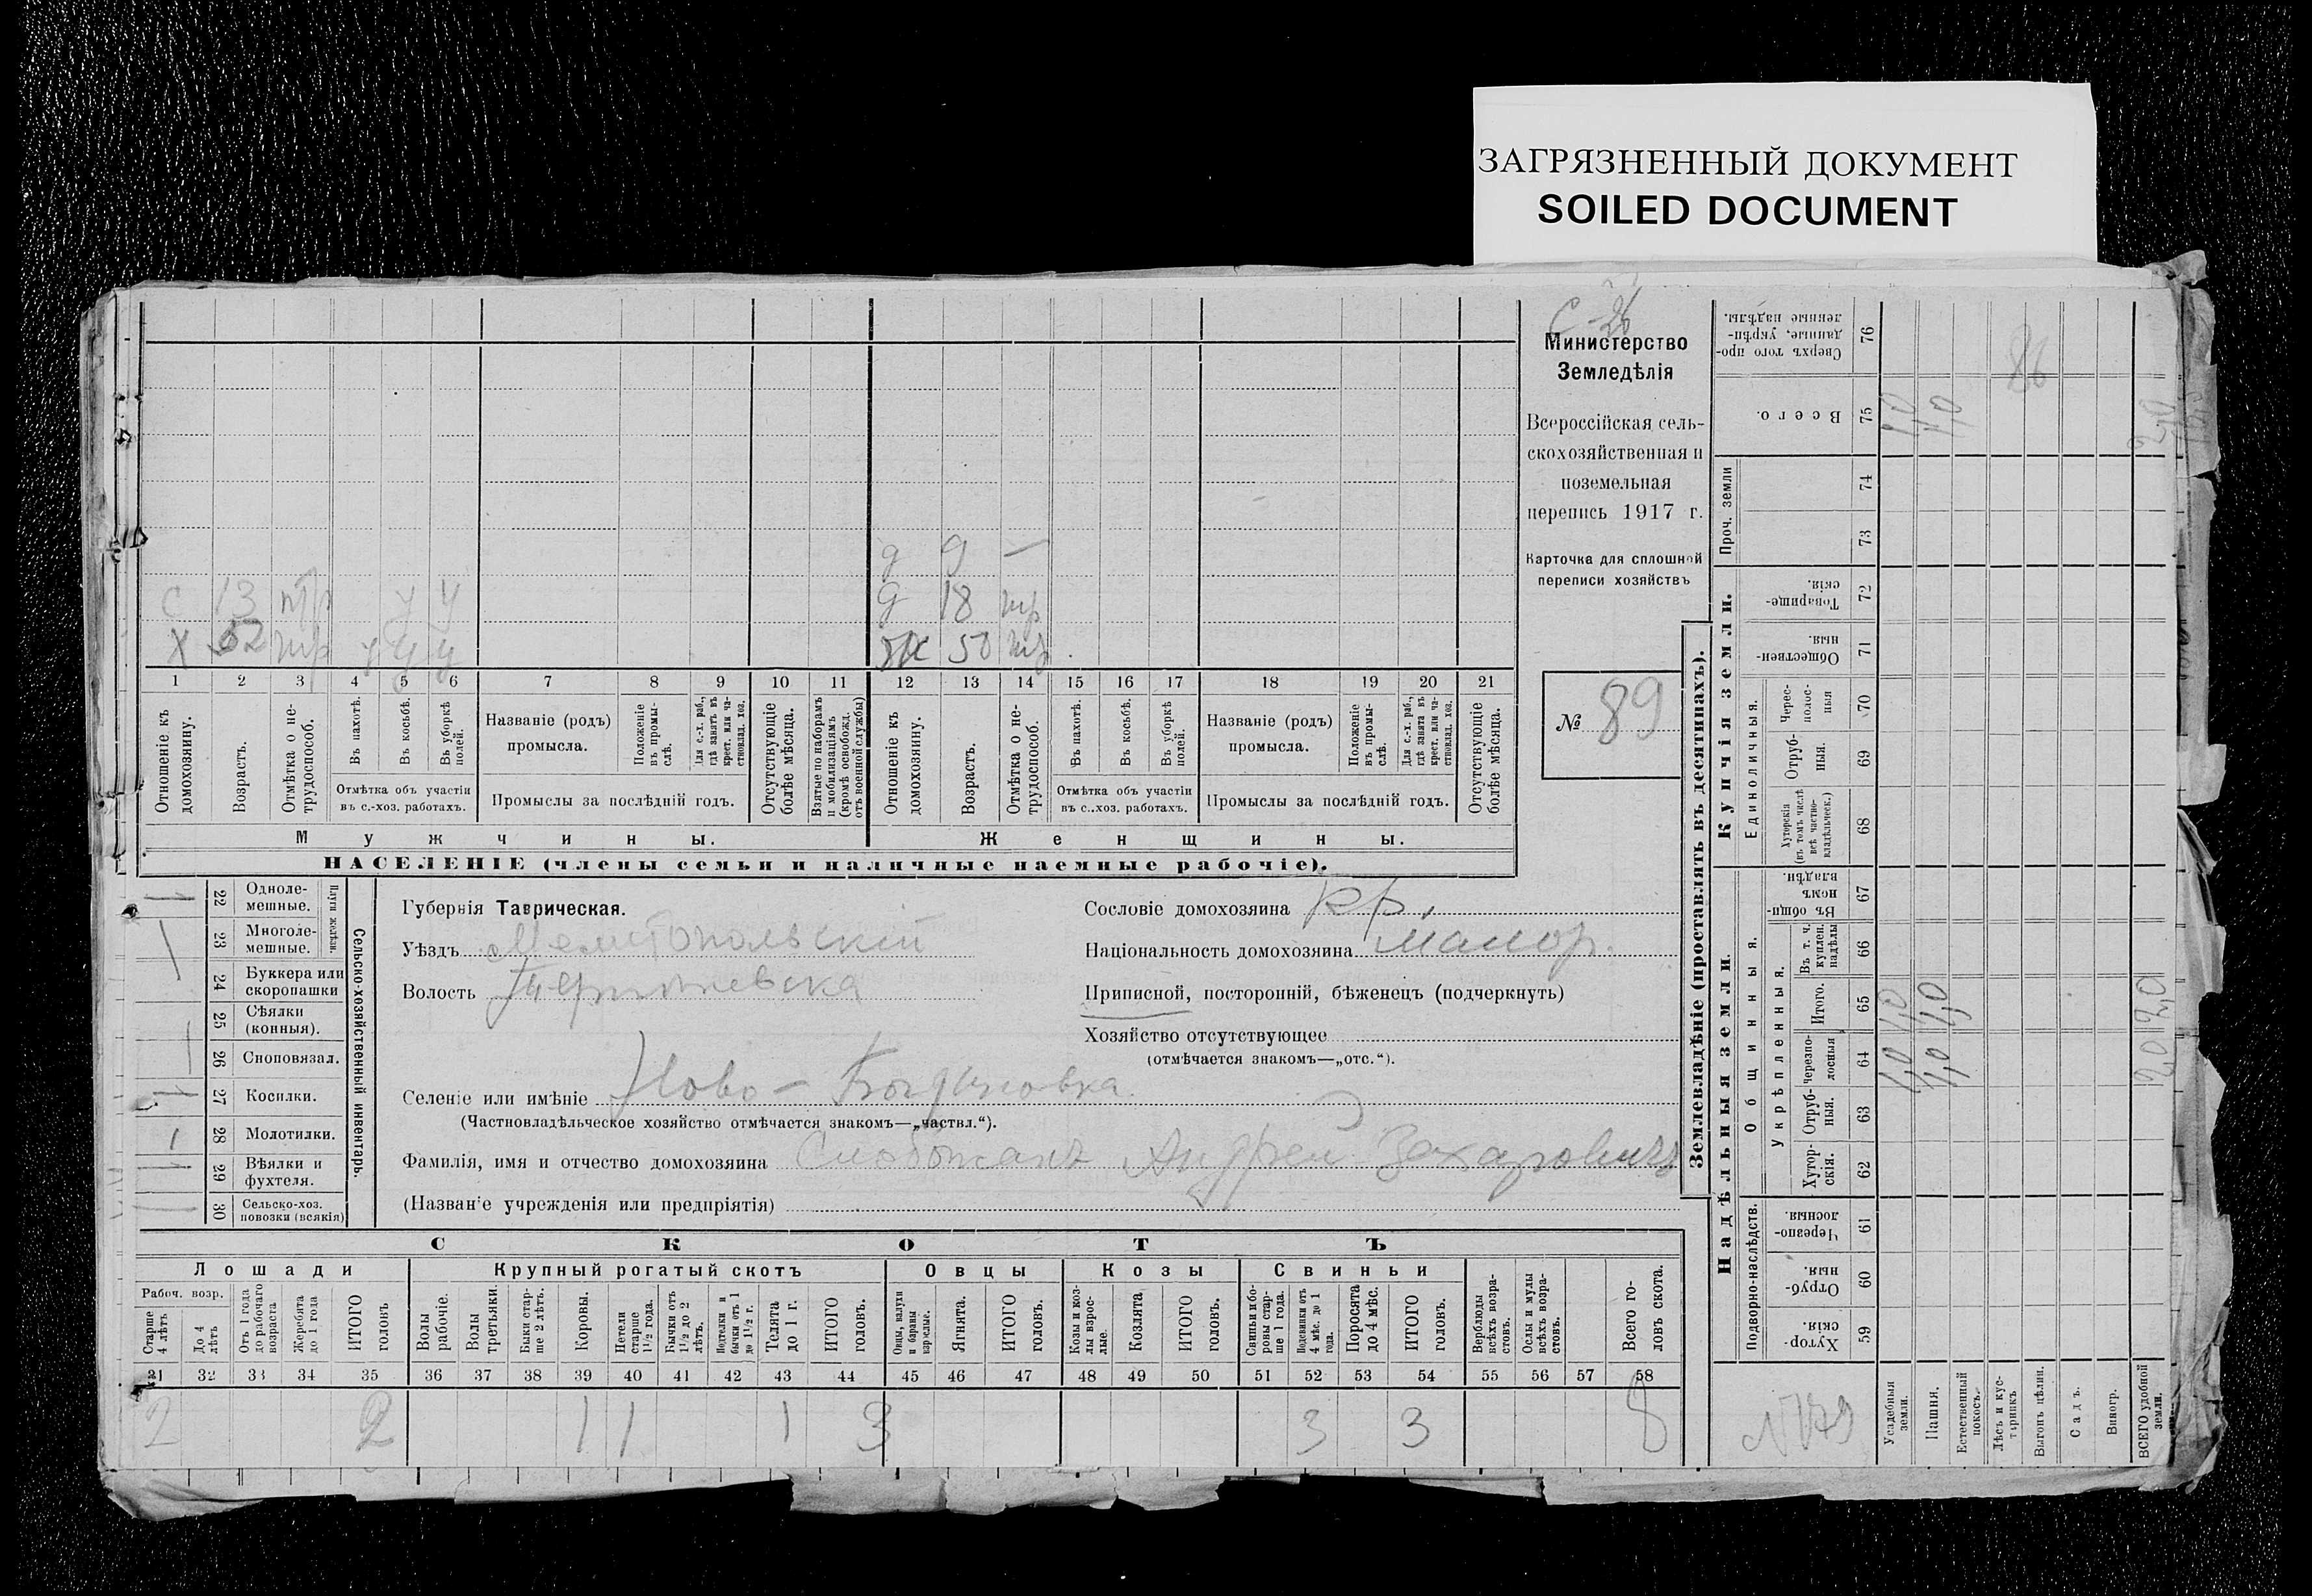 ЗАГРЯЗНЕННЫЙ ДОКУМЕНТ
SOILED DOCUMENT
Министерство
Земледѣлія
Всероссійская сель-
скохозяйственная и
поземельная
перепись 1917 г.
Карточка для сплошной
переписи хозяйствъ
№ 89
д 9 —
с 13 тр у у д 18 тр
х 52 тр у у у ж 50 тр
1 2 3 4 5 6 7 8 9 10 11 12 13 14 15 16 17 18 19 20 21
Отношеніе къ домохозяину.
Возрастъ.
Отмѣтка о не-трудоспособ.
Въ пахотѣ.
Въ косьбѣ.
Въ уборкѣ полей.
Отмѣтка объ участіи
въ с.-хоз. работахъ.
Названіе (родъ)
промысла.
Положеніе въ промы-слѣ.
Для с.-х. раб., гдѣ занятъ въ крест. или ча-стновлад. хоз.
Промыслы за послѣдній годъ.
Отсутствующіе болѣе мѣсяца.
Взятые по наборамъ и мобилизаціямъ (кромѣ освобожд. отъ военной службы)
Отношеніе къ домохозяину.
Возрастъ.
Отмѣтка о не-трудоспособ.
Въ пахотѣ.
Въ косьбѣ.
Въ уборкѣ полей.
Отмѣтка объ участіи
въ с..хоз. работахъ.
Названіе (родъ)
промысла.
Положеніе въ промы-слѣ.
Для с.-х. раб., гдѣ занята въ крест. или ча-стновлад. хоз.
Промыслы за послѣдній годъ.
Отсутствующіе болѣе мѣсяца.
Мужчины. Женщины.
НАСЕЛЕНІЕ (члены семьи и наличные наемные рабочіе).
22 Одноле-мешные.
23 Многоле-мешные.
Плуги желѣзн.
24 Буккера или скоропашки
25 Сѣялки (конныя).
26 Сноповязал.
27 Косилки.
28 Молотилки.
29 Вѣялки и фухтеля.
30 Сельско-хоз. повозки (всякія)
Сельско-хозяйственный инвентарь.
Губернія Таврическая.
Уѣздъ Мелитопольскій
Волость
Сословіе домохозяина кр.
Національность домохозяина малор.
Приписной, посторонній, бѣженецъ (подчеркнуть)
Хозяйство отсутствующее
(отмѣчается знакомъ—„отс.“).
Селеніе или имѣніе Ново-Богдановка
(Частновладѣльческое хозяйство отмѣчается знакомъ—„частвл.“).
Фамилія, имя и отчество домохозяина Слабожанъ Андрей Захаровичъ
(Названіе учрежденія или предпріятія)
СКОТЪ
Лошади Крупный рогатый скотъ Овцы Козы Свиньи
Рабоч. возр.
Старше 4 лѣтъ
До 4 лѣтъ
Отъ 1 года до рабочаго возраста
Жеребята до 1 года
ИТОГО головъ
Волы рабочіе.
Волы третьяки.
Быки стар-ше 2 лѣтъ.
Коровы.
Нетели старше 1½ года.
Бычки отъ 1½ до 2 лѣтъ.
Подтелки и бычки отъ 1 до 1½ г.
Телята до 1 г.
ИТОГО головъ.
Овцы, валухи и бараны взрослые.
Ягнята.
ИТОГО головъ.
Козы и коз-лы взрос-лые.
Козлята
ИТОГО головъ.
Свиньи и бо-ровы стар-ше 1 года.
Подсвинки отъ 4 мѣс. до 1 года.
Поросята до 4 мѣс.
ИТОГО головъ.
Верблюды всѣхъ возра-стовъ.
Ослы и мулы всѣхъ возра-стовъ.
Всего го-ловъ скота.
31 32 33 34 35 36 37 38 39 40 41 42 43 44 45 46 47 48 49 50 51 52 53 54 55 56 57 58
2 2 1 1 1 3 3 3 8
Землевладѣніе (проставлять въ десятинахъ).
Надѣльныя земли.
Купчія земли.
Проч. земли
Подворно-наслѣдств.
Общинныя.
Укрѣпленныя.
Единоличныя.
Хутор-скія. 59
Отруб-ныя. 60
Черезпо-лосныя. 61
Хутор-скія. 62
Отруб-ныя. 63
Черезпо-лосныя 64
Итого. 65
Въ т. ч. куплен. надѣлы 66
Въ общи-номъ владѣн. 67
Хуторскія (въ томъ числѣ всѣ частно-владѣльческ.) 68
Отруб-ныя. 69
Черес-полос-ныя 70
Обществен-ныя. 71
Товарище-скія. 72
73
74
Всего. 75
Сверхъ того про-данные, укрѣп-ленные надѣлы. 76
Усадебныя земли.
Пашня.
Естественный покосъ.
Лѣсъ и кус-тарникъ
Выгонъ цѣлин.
Садъ.
Виногр.
ВСЕГО удобной земли.